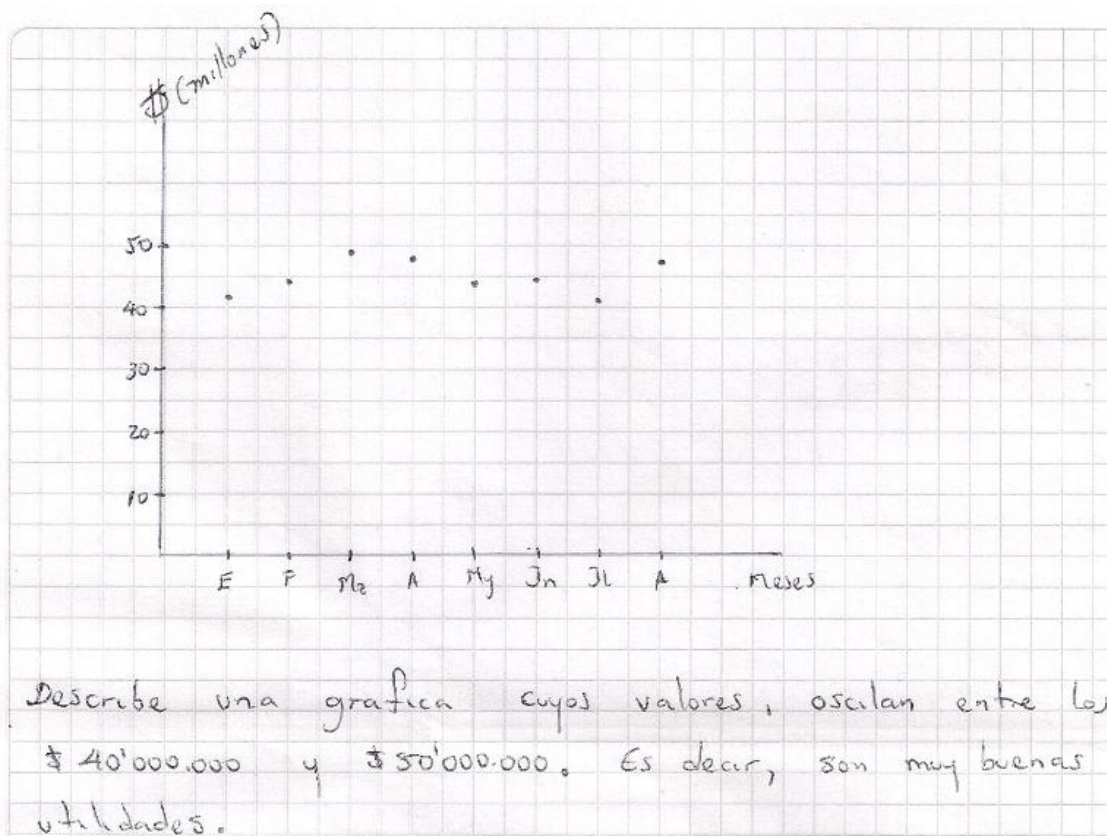 $ (millones)
50
40
30
20
10
E F Mz A My Jn Jl A Meses
Describe una grafica cuyos valores, oscilan entre los
$ 40'000.000 y $ 50'000.000. Es decir, son muy buenas
utilidades.